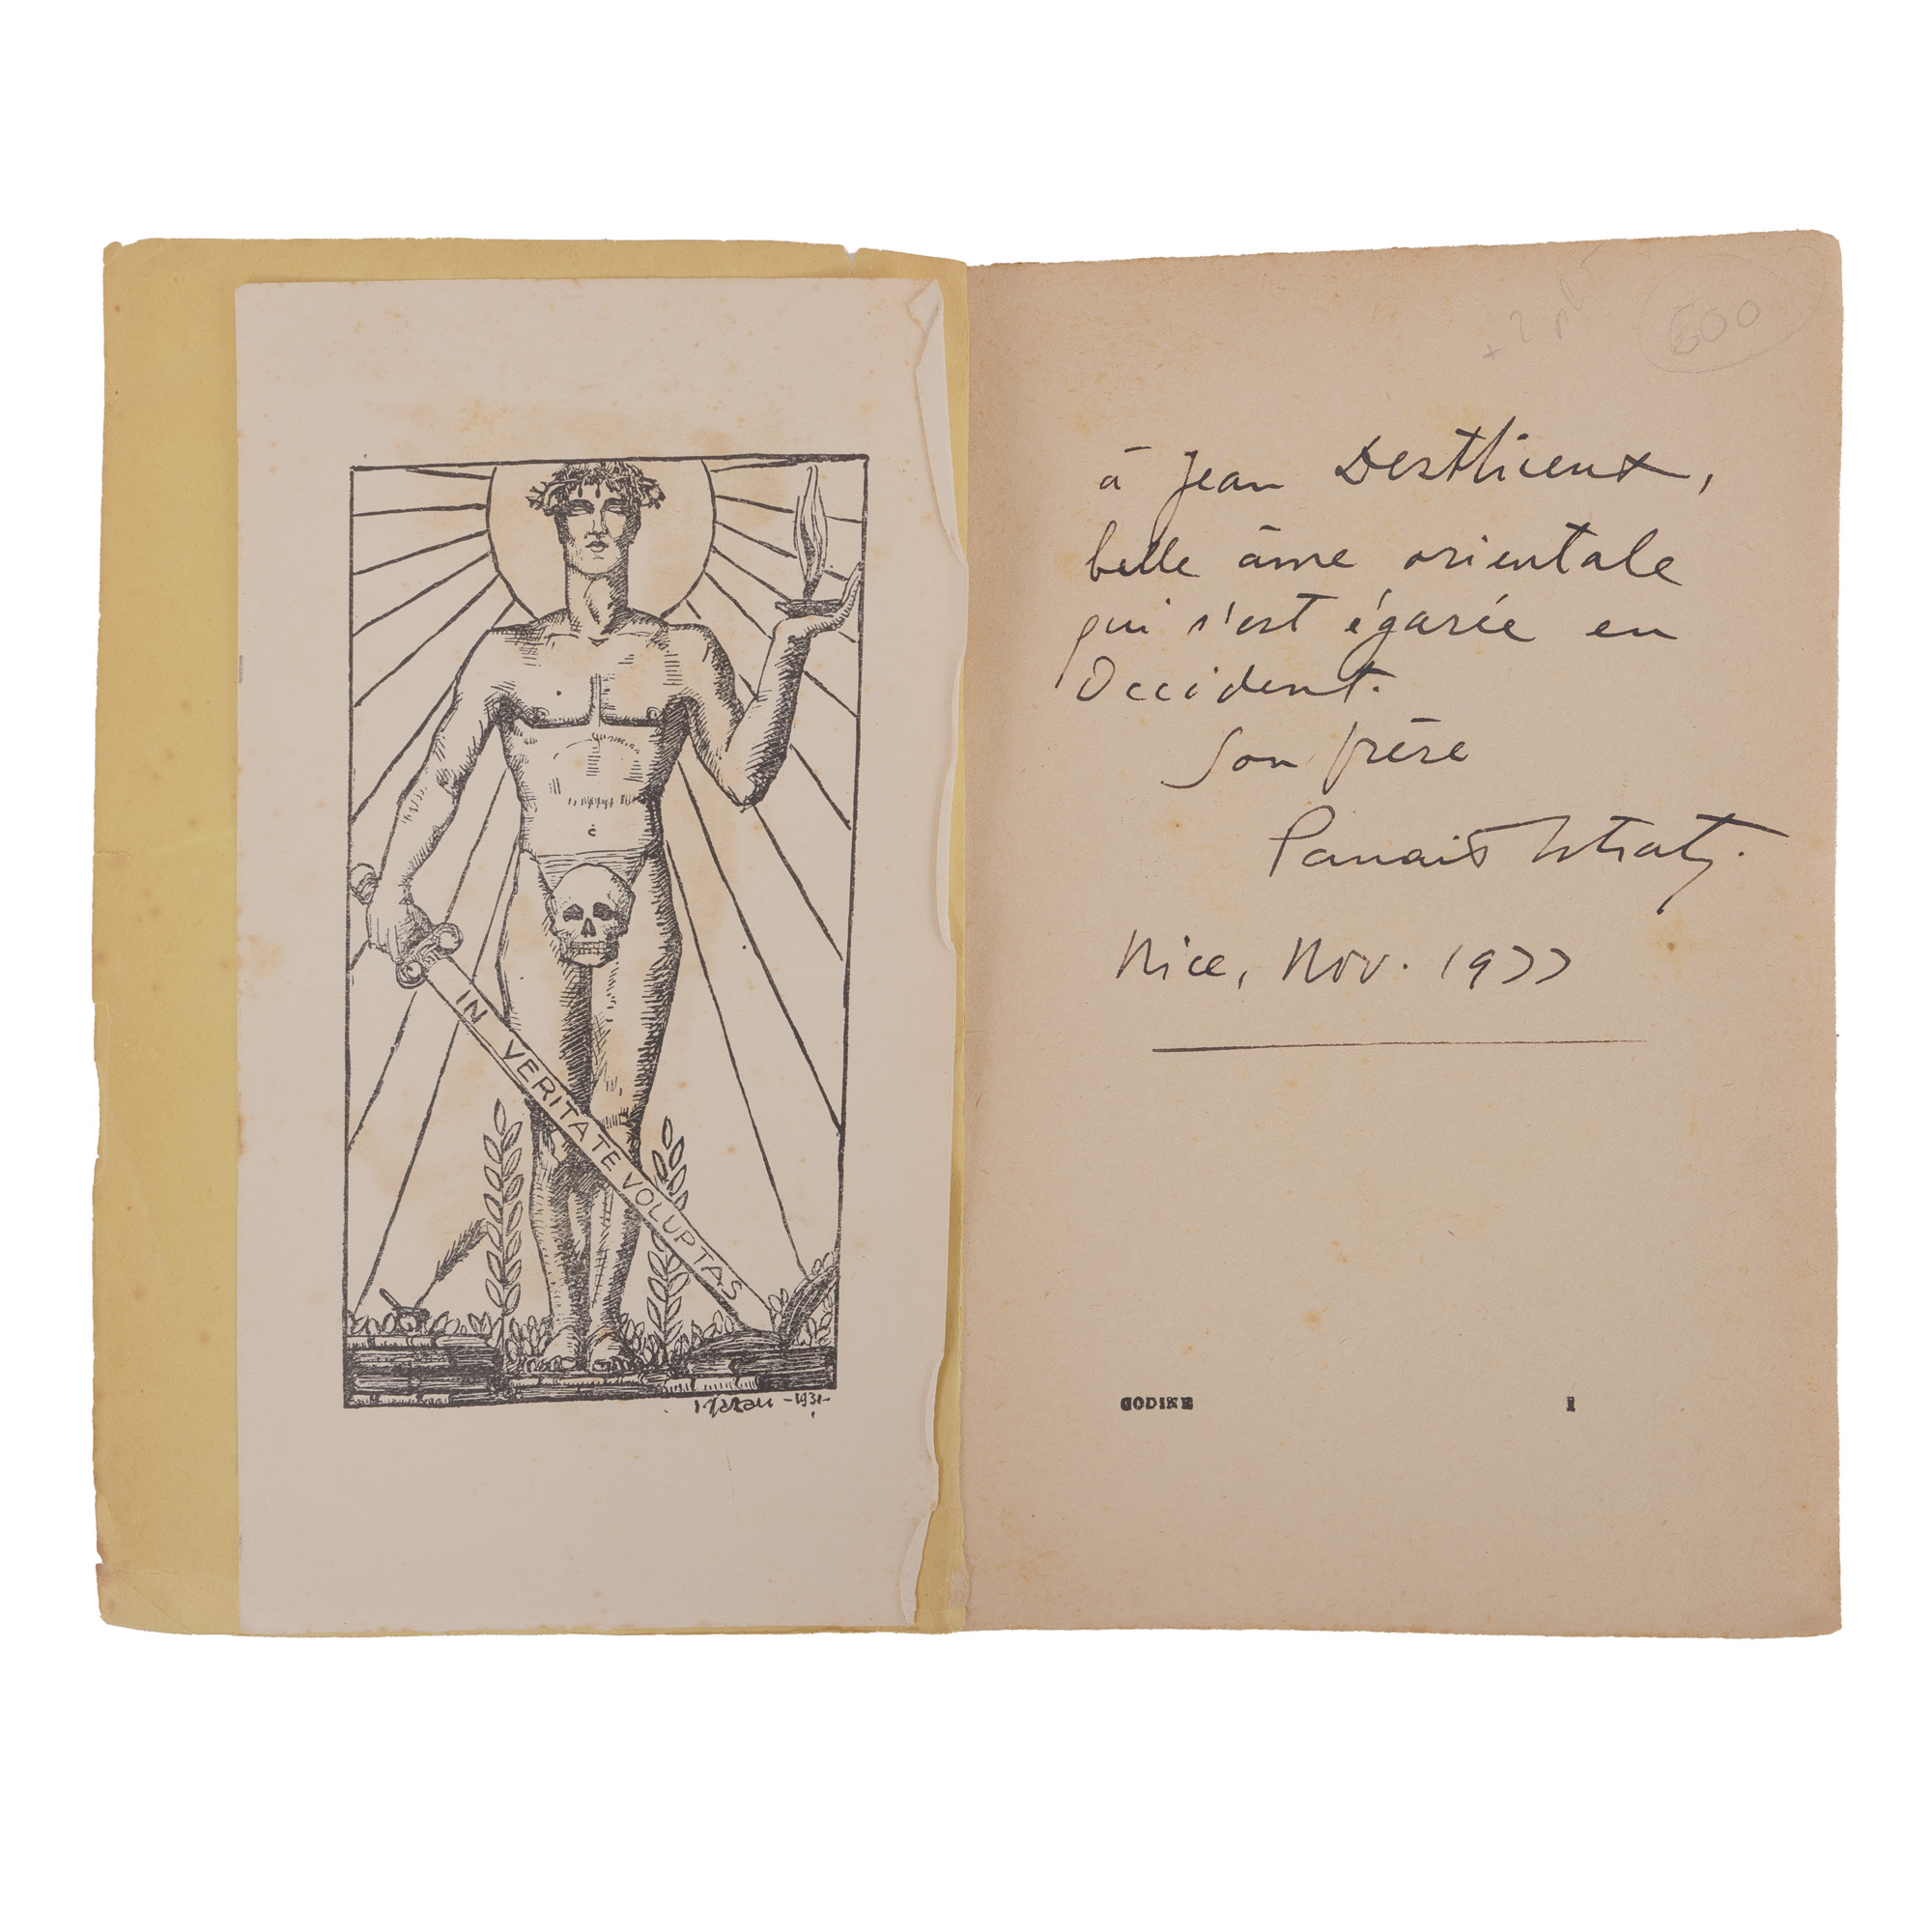 IN VERITATE VOLUPTAS
-1931-
+ 2 pl
à Jean Desthieux,
belle âme orientale
qui s'est égarée en
Occident.
Son frère
Panaït Istrati.
Nice, Nov. 1933
CODINE 1